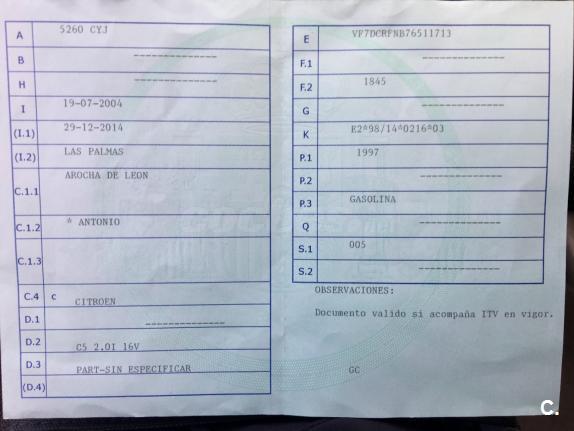 A 5260 CYJ
B --------------
H --------------
I 19-07-2004
(I.1) 29-12-2014
(I.2) LAS PALMAS
C.1.1 AROCHA DE LEON
C.1.2 * ANTONIO
C.1.3
C.4 c
CITROEN
D.1 --------------
D.2 C5 2.0I 16V
D.3 PART-SIN ESPECIFICAR
(D.4)
E VF7DCRFNB76511713
F.1 --------------
F.2 1845
G --------------
K E2*98/14*0216*03
P.1 1997
P.2 --------------
P.3 GASOLINA
Q --------------
S.1 005
S.2 --------------
OBSERVACIONES:
Documento valido si acompaña ITV en vigor.
GC
C.